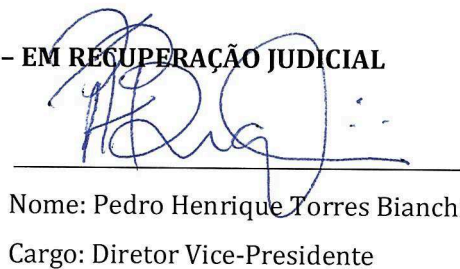 – EM RECUPERAÇÃO JUDICIAL
Nome: Pedro Henrique Torres Bianch
Cargo: Diretor Vice-Presidente